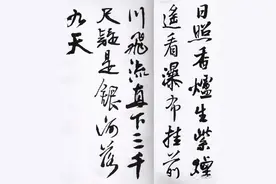 日照香爐生紫煙
遙看瀑布挂前
川飛流直下三千
尺疑是銀河落
九天